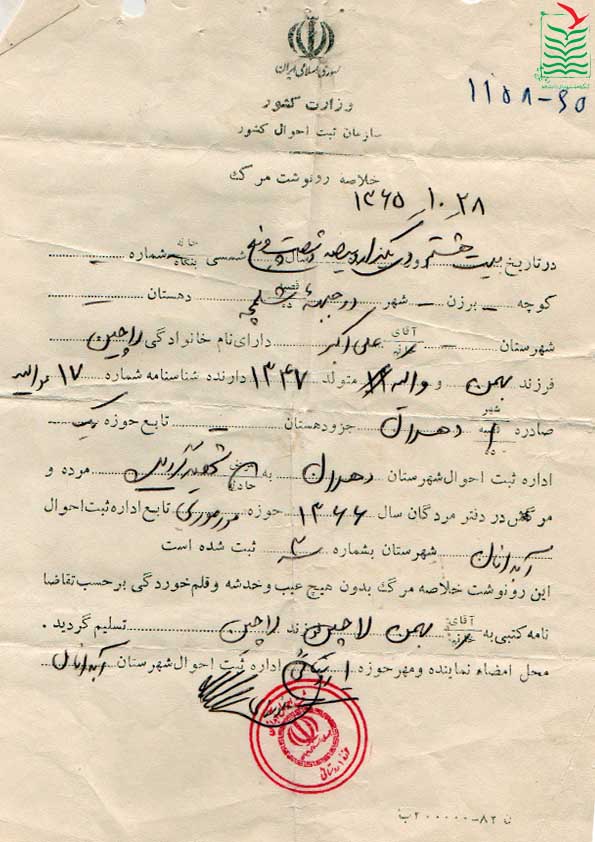 جمهوری اسلامی ایران
وزارت کشور
۱۱۵۸-۶۵
سازمان ثبت احوال کشور
خلاصه رونوشت مرگ
۱۳۶۵ر۱۰ر۲۸
در تاریخ بیست هشتم دی یکهزار و سیصد و شصت و پنج سال شمسی خانه بنگاه شماره
کوچه – برزن – شهر در جبهه شلمچه قصبه ده دهستان –
شهرستان – آقای علی اکبر دارای نام خانوادگی لاچین
فرزند بهمن و متولد ۱۳۴۷ دارنده شناسنامه شماره ۱۷
صادره شهر قصبه ده دهلران جزو دهستان – تابع حوزه یک
اداره ثبت احوال شهرستان دهلران به حادثه مرده و
مرگش در دفتر مردگان سال ۱۳۶۶ حوزه مورموری تابع اداره ثبت احوال
آبدانان شهرستان بشماره ثبت شده است
این رونوشت خلاصه مرگ بدون هیچ عیب و خدشه و قلم خوردگی بر حسب تقاضا
نامه کتبی به آقای بهمن لاچین فرزند لاچین تسلیم گردید .
محل امضاء نماینده و مهر حوزه اداره ثبت احوال شهرستان آبدانان
ن ۸۲-۲۰۰۰۰۰ب